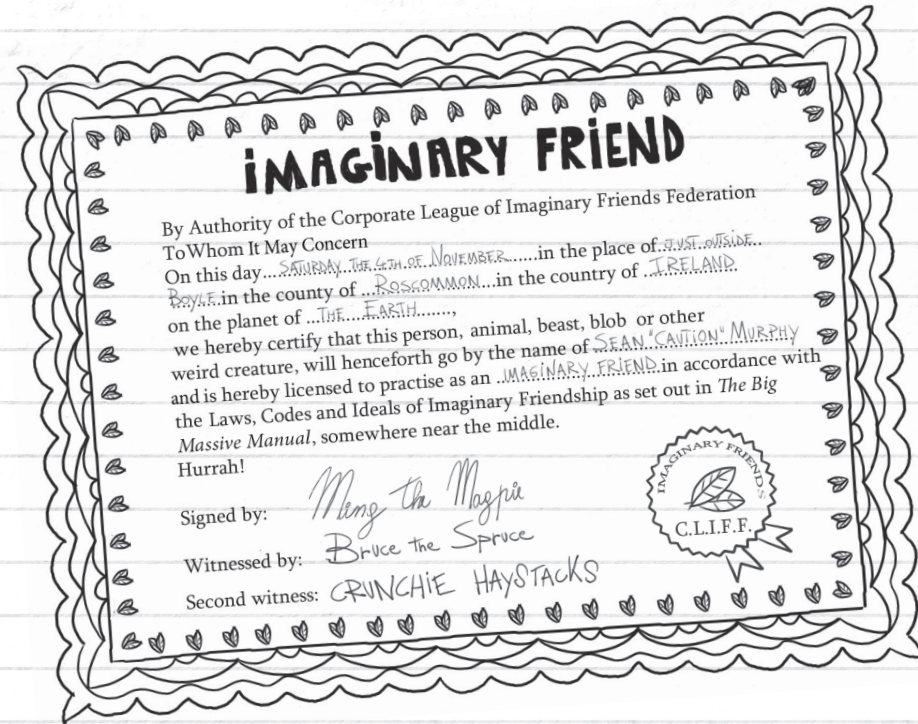 iMAGiNARY FRiEND
By Authority of the Corporate League of Imaginary Friends Federation
To Whom It May Concern
On this day...SATURDAY THE 4TH OF NOVEMBER......in the place of JUST OUTSIDE..
BOYLE in the county of ..ROSCOMMON...in the country of ..IRELAND
on the planet of ..THE....EARTH.......,
we hereby certify that this person, animal, beast, blob or other
weird creature, will henceforth go by the name of SEAN "CAUTION" MURPHY
and is hereby licensed to practise as an ..IMAGINARY FRIEND.in accordance with
the Laws, Codes and Ideals of Imaginary Friendship as set out in The Big
Massive Manual, somewhere near the middle.
Hurrah!
Signed by: Ming the Magpie
Witnessed by: Bruce the Spruce
Second witness: CRUNCHiE HAYSTACKS
IMAGINARY FRIENDS
C.L.I.F.F.